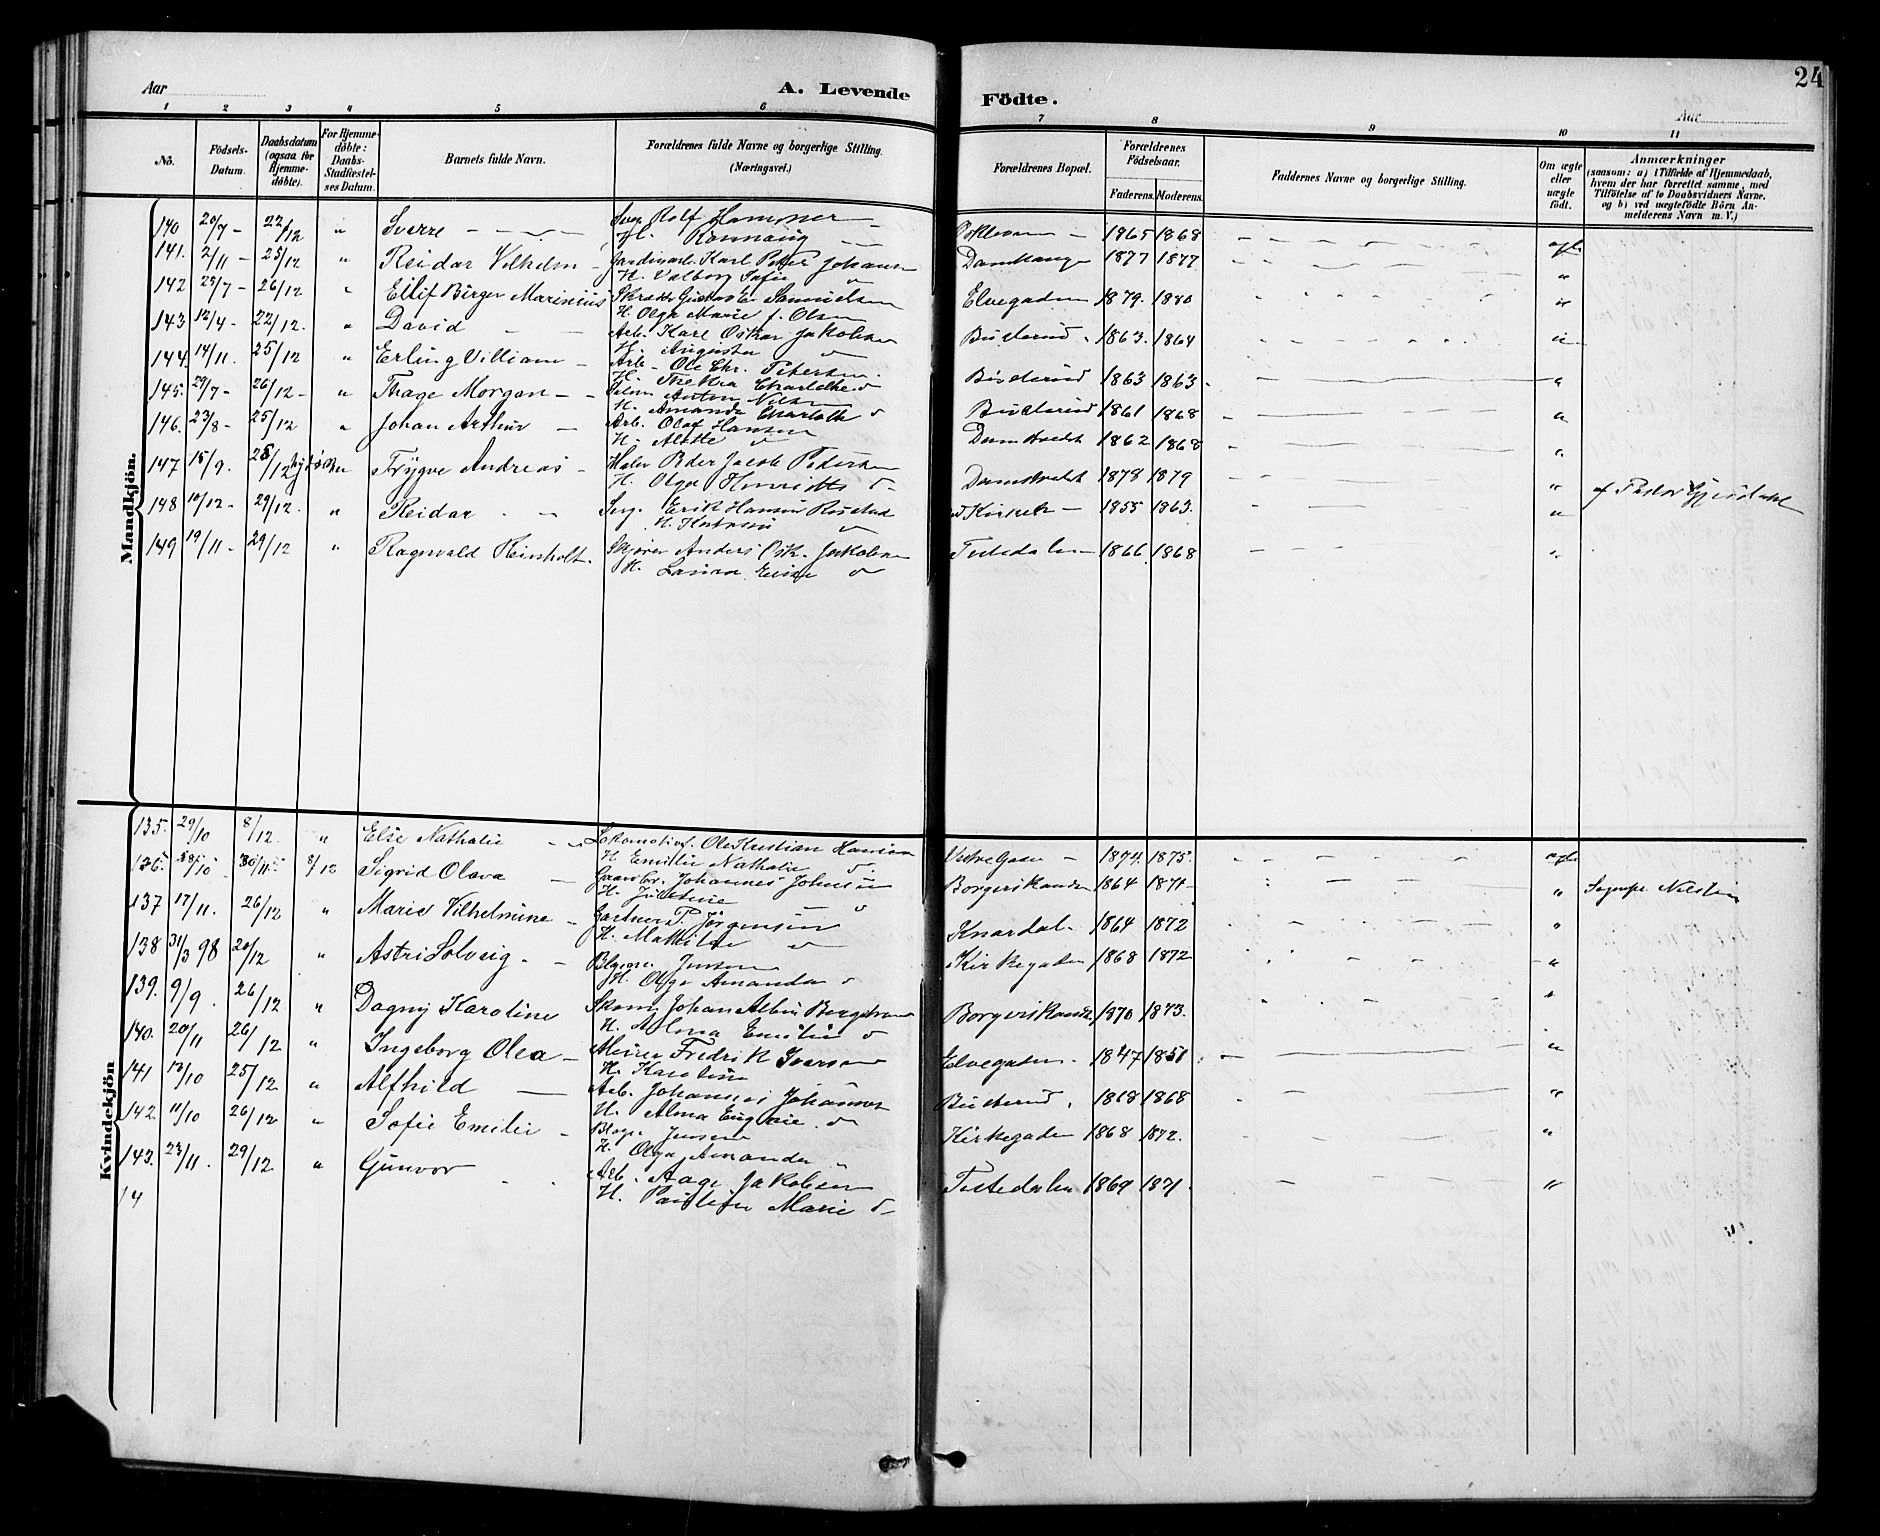 24
Aar
A. Levende Födte.
Aar
1 2 3 4 5 6 7 8 9 10 11
No. Födsels-Datum. Daabsdatum (ogsaa for Hjemmedöbte). For Hjemmedöbte: Daabs-Stadfæstelses Datum. Barnets fulde Navn. Forældrenes fulde Navne og borgerlige Stilling. (Næringsvei.) Forældrenes Bopæl. Forældrenes Födselsaar. Faderens. Moderens. Faddernes Navne og borgerlige Stilling. Om ægte eller uægte födt. Anmærkninger (saasom: a) i Tilfælde af Hjemmedaab, hvem der har forrettet samme, med Tilföielse af to Daabsvidners Navne, og b) ved uægtefödte Börn Anmelderens Navn m. V.)
Mandkjön.
140 20/7 - 22/12 " Sverre - Rolf Hammer - 1865 1868 - ægte
H. Rannaug -
141. 2/11 - 25/12 " Reidar Vilhelm - Karl Peter Johansen 1877 1877 "
H. Valborg Sofie "
142 25/7 - 26/12 " Ellif Birger Marinius Skrædder Gustav Samuelsen Elvegaden 1879. 1880 "
H. Olga Marie f. Olsen
143 12/4 - 22/12. " David - Arb. Karl Oskar Jakobsen Busterud. 1863. 1864 "
H. Augusta "
144. 14/11. 25/12 " Erling Villiam - Arb - Ole Chr. Petersen. Busterud 1863 1863. - "
H. Thekra Charlotte
145. 29/7 - 26/12 - " Thage Morgan - Anton Nilsen Busterud 1861 1868 "
H. Amanda Charlotte
146. 23/8 - 25/12 " Johan Arthur - Arb. Olaf Hansen Damstredt 1862 1868 "
H.
147 15/9. 28/12 Trygve Andreas - Maler Peder Jacob Pedersen Damstredt 1878 1879 " af Pastor Gjerdahl
H. Olga
148 10/12 - 29/12. " Reidar - - Erik Hansen 1855 1863. "
H.
149 19/11 - 29/12 " Ragnvald Reinholt. Anders Osk. Jakobsen Tistedalen - 1866 1868 "
H.
Kvindekjön
135. 29/10 8/12. " Else Nathalie - Lokomotivf. Ole Kristian Hansen - 1874. 1875. ægte
H. Emilie Nathalie
136. 28/10 30/11 8/12 Sigrid Olava - Johannes Johnsen Borgerskanden 1864 1871 - " Sognepr. Nilssen
H.
137 17/11. 26/12 " Marie Vilhelmine - Gartner P. Jörgensen Knardal. 1864 1872 "
H. Mathilde
138 31/3 98 20/12 " Astri Solveig. - Jensen Kirkegaden 1868 1872 "
H. Olga Amanda
139. 9/9. 26/12 " Dagny Karoline Skom. Johan Albin 1870 1873. "
H. Emilie
140. 20/11 26/12 " Ingeborg Olea - Fredrik Iversen Elvegaden. 1847 1851 "
H. Karoline
141 12/10 25/12 " Alfhild - Arb. Johannes Johannes Busterud. 1868 1868 "
H. Alma Eugenie.
142. 11/10 26/12 " Sofie Emilie - Jensen Kirkegaden 1868 1872. "
H. Olga Amanda
143. 23/11. 29/12 " Gunvor Arb. Aage Jakobsen Tistedalen 1869 1871. "
14 H. Pauline Marie